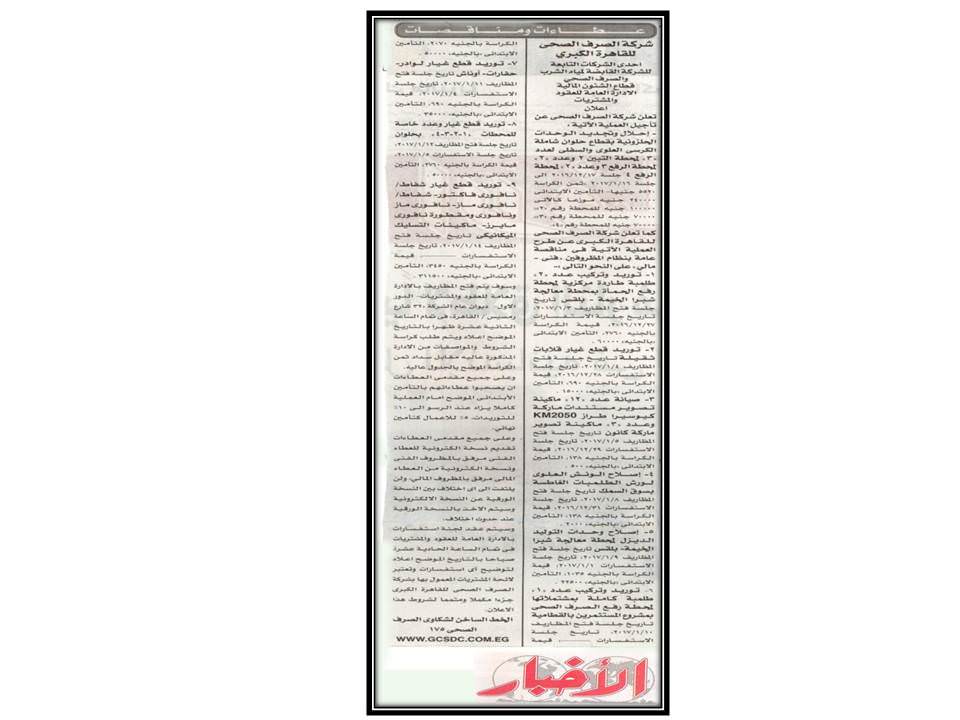 عطاءات ومناقصات
شركة الصرف الصحى
للقاهرة الكبري
احدى الشركات التابعة
للشركة القابضة لمياه الشرب
والصرف الصحى
قطاع الشئون المالية
الادارة العامة للعقود
والمشتريات
اعلان
تعلن شركة الصرف الصحى عن
تأجيل العملية الآتية :
- إحلال وتجديد الوحدات
الحلزونية بقطاع حلوان شاملة
الكرسى العلوى والسفلى لعدد
٣٠، لمحطة التبين ٢ وعدد ٢٠،
لمحطة الرفع ٣ وعدد ٢٠، لمحطة
الرفع ٤ جلسة ٢٠١٦/١٢/١٧ الى
جلسة ٢٠١٧/١/١٦ ، ثمن الكراسة
٥٥٢٠ جنيها - التأمين الابتدائى
٢٤٠٠٠٠ جنيه موزعا كالآتى
١٠٠٠٠٠ جنيه للمحطة رقم ٢٠،
٧٠٠٠٠ جنيه للمحطة رقم ٣٠،
٧٠٠٠٠ جنيه للمحطة رقم ٤٠،
كما تعلن شركة الصرف الصحى
للقاهرة الكبرى عن طرح
العملية الآتية فى مناقصة
عامة بنظام المظروفين ، فنى -
مالي، على النحو التالى :-
١- توريد وتركيب عدد ٢٠،
طلمبة طاردة مركزية لمحطة
رفع الحمأة بمحطة معالجة
شبرا الخيمة - بلقس تاريخ
جلسة فتح المظاريف ٢٠١٧/١/٣،
تاريخ جلسة الاستفسارات
٢٠١٦/١٢/٢٧، قيمة الكراسة
بالجنيه ٢٧٦٠، التأمين الابتدائى
،بالجنيه، ٦٠٠٠٠ .
٢- توريد قطع غيار قلابات
ثقيلة تاريخ جلسة فتح
المظاريف ٢٠١٧/١/٤، تاريخ جلسة
الاستفسارات ٢٠١٦/١٢/٢٨، قيمة
الكراسة بالجنيه ٦٩٠، التأمين
الابتدائى ،بالجنيه، ١٥٠٠٠ .
٣- صيانة عدد ١٢، ماكينة
تصوير مستندات ماركة
كيوسيرا طراز KM2050
وعدد ٣٠، ماكينة تصوير
ماركة كانون تاريخ جلسة فتح
المظاريف ٢٠١٧/١/٥، تاريخ جلسة
الاستفسارات ٢٠١٦/١٢/٢٩، قيمة
الكراسة بالجنيه ١٣٨، التأمين
الابتدائى ،بالجنيه، ٥٠٠ .
٤- إصلاح الونش العلوى
لورش الطلمبات الغاطسة
بسوق السمك تاريخ جلسة فتح
المظاريف ٢٠١٧/١/٨، تاريخ جلسة
الاستفسارات ٢٠١٦/١٢/٣١، قيمة
الكراسة بالجنيه ١٣٨، التأمين
الابتدائى ،بالجنيه، ٢٠٠٠ .
٥- إصلاح وحدات التوليد
الديزل لمحطة معالجة شبرا
الخيمة- بلقس تاريخ جلسة فتح
المظاريف ٢٠١٧/١/٩، تاريخ جلسة
الاستفسارات ٢٠١٧/١/١، قيمة
الكراسة بالجنيه ١٠٣٥، التأمين
الابتدائى ،بالجنيه، ٢٢٥٠٠ .
٦- توريد وتركيب عدد ١٠،
طلمبة كاملة بمشتملاتها
لمحطة رفع الصرف الصحى
بمشروع المستثمرين بالقطامية
تاريخ جلسة فتح المظاريف
٢٠١٧/١/١٠، تاريخ جلسة
الاستفسارات ــــــــ قيمة
الكراسة بالجنيه ٢٠٧٠، التأمين
الابتدائى ،بالجنيه، ٥٠٠٠٠ .
٧- توريد قطع غيار لوادر-
حفارات- أوناش تاريخ جلسة فتح
المظاريف ٢٠١٧/١/١١، تاريخ جلسة
الاستفسارات ٢٠١٧/١/٤، قيمة
الكراسة بالجنيه ٦٩٠، التأمين
الابتدائى ،بالجنيه، ٣٥٠٠٠ .
٨- توريد قطع غيار وعدد خاصة
للمحطات ،١-٢-٣-٤، بحلوان
تاريخ جلسة فتح المظاريف ٢٠١٧/١/١٢،
تاريخ جلسة الاستفسارات ٢٠١٧/١/٥،
قيمة الكراسة بالجنيه ٢٧٦٠، التأمين
الابتدائى ،بالجنيه، ٥٠٠٠٠ .
٩- توريد قطع غيار شفاط/
نافورى فاكتور- شفاط/
نافورى ماز- نافورى ماز
ونافورى ومقطورة نافورى
مايرز- ماكينات التسليك
الميكانيكى تاريخ جلسة فتح
المظاريف ٢٠١٧/١/١٤، تاريخ جلسة
الاستفسارات ــــــــ قيمة
الكراسة بالجنيه ٣٤٥٠، التأمين
الابتدائى ،بالجنيه، ٣١١٥٠٠ .
وسوف يتم فتح المظاريف بالادارة
العامة للعقود والمشتريات- الدور
الاول- ديوان عام الشركة ٣٢٠ شارع
رمسيس / القاهرة، فى تمام الساعة
الثانية عشرة ظهرا بالتاريخ
الموضح اعلاه ويتم طلب كراسة
الشروط والمواصفات من الادارة
المذكورة عاليه مقابل سداد ثمن
الكراسة الموضح بالجدول عاليه.
وعلى جميع مقدمى العطاءات
ان يصحبوا عطاءاتهم بالتأمين
الأبتدائى الموضح امام العملية
كاملا يزاد عند الرسو الى ١٠٪
للتوريدات، ٥٪ للاعمال كتأمين
نهائي.
وعلى جميع مقدمى العطاءات
تقديم نسخة الكترونية للعطاء
الفنى مرفق بالمظروف الفنى
ونسخة الكترونية من العطاء
المالى مرفق بالمظروف المالى، ولن
يلتفت الى اى اختلاف بين النسخة
الورقية عن النسخة الالكترونية
وسيتم الاخذ بالنسخة الورقية
عند حدوث اختلاف.
وسيتم عقد لجنة استفسارات
بالادارة العامة للعقود والمشتريات
فى تمام الساعة الحادية عشرة
صباحا بالتاريخ الموضح اعلاه
لتوضيح أى استفسارات وتعتبر
لائحة المشتريات المعمول بها بشركة
الصرف الصحى للقاهرة الكبرى
جزءا مكملا ومتمما لشروط هذا
الاعلان.
الخط الساخن لشكاوى الصرف
الصحى ١٧٥
WWW.GCSDC.COM.EG
الأخبار